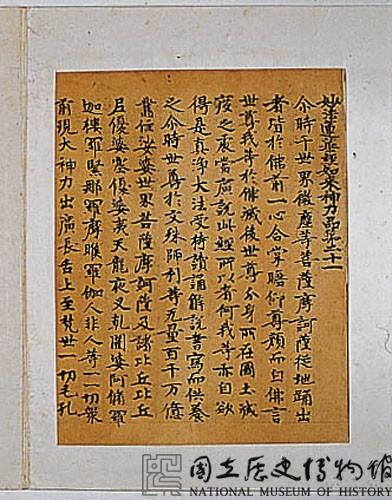 妙法蓮華經如來神力品第二十一
尒時千世界微塵等菩薩摩訶薩從地踊出
者皆於佛前一心合掌瞻仰尊顏而白佛言
世尊我等於佛滅後世尊分身所在國土滅
度之處當廣說此經所以者何我等亦自欲
得是真淨大法受持讀誦解說書寫而供養
之尒時世尊於文殊師利等无量百千万億
舊住娑婆世界菩薩摩訶薩及諸比丘比丘
尼優婆塞優婆夷天龍夜叉乾闥婆阿修羅
迦樓羅緊那羅摩睺羅伽人非人等一切眾
前現大神力出廣長舌上至梵世一切毛孔
國立歷史博物館
NATIONAL MUSEUM OF HISTORY